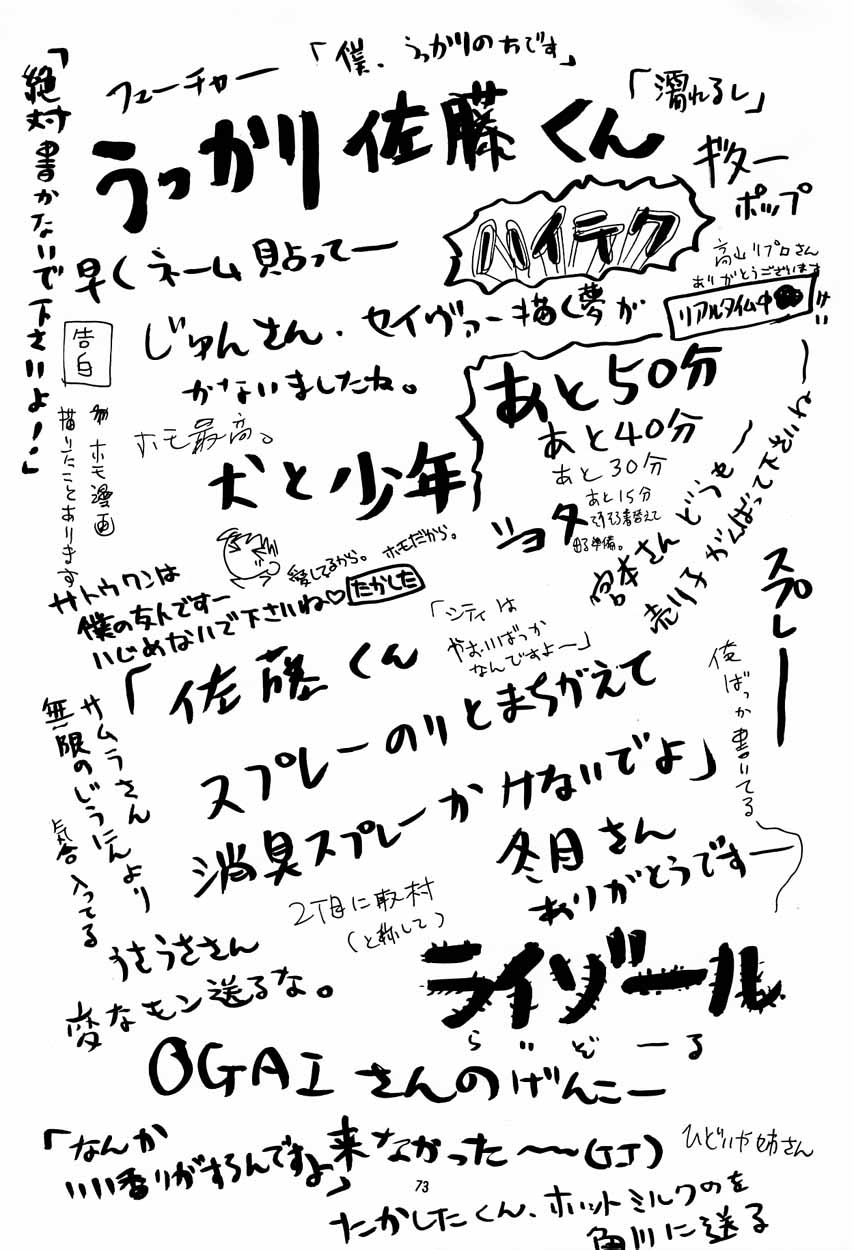 「絶対書かないで下さいよ!」
フューチャー
「僕、うっかりのちです」
「濡れるし」
うっかり佐藤くん
ギター
ポップ
ハイテク
高山リプロさん
ありがとうございます
早くネーム貼ってー
リアルタイム中
けい
じゅんさん、セイヴァー描く夢が
かないましたね。
告白
ホモ漫画
描いたことあります
ホモ最高。
犬と少年
あと50分
あと40分
あと30分
あと15分
そろそろ着替えて
出る準備。
ショタ
宮本さんどうもー
売り子がんばって下さいねー
愛してるから。ホモだから。
サトウワンは
僕の友人ですー
いじめないで下さいね♡
たかした
「シティは
やおいばっか
なんですよー」
スプレー
俺ばっか書いてる
「佐藤くん
スプレーのりとまちがえて
消臭スプレーかけないでよ」
サムラさん
無限のじうにんより
気合入ってる
冬月さん
ありがとうですー
2丁目に取材
(と称して)
うさうささん
変なモン送るな。
ライゾール
らいぞーる
OGAIさんのげんこー
来なかった〜〜(GJ)
「なんか
いい香りがするんですよ」
ひどいや姉さん
73
たかしたくん、ホットミルクのを
角川に送る